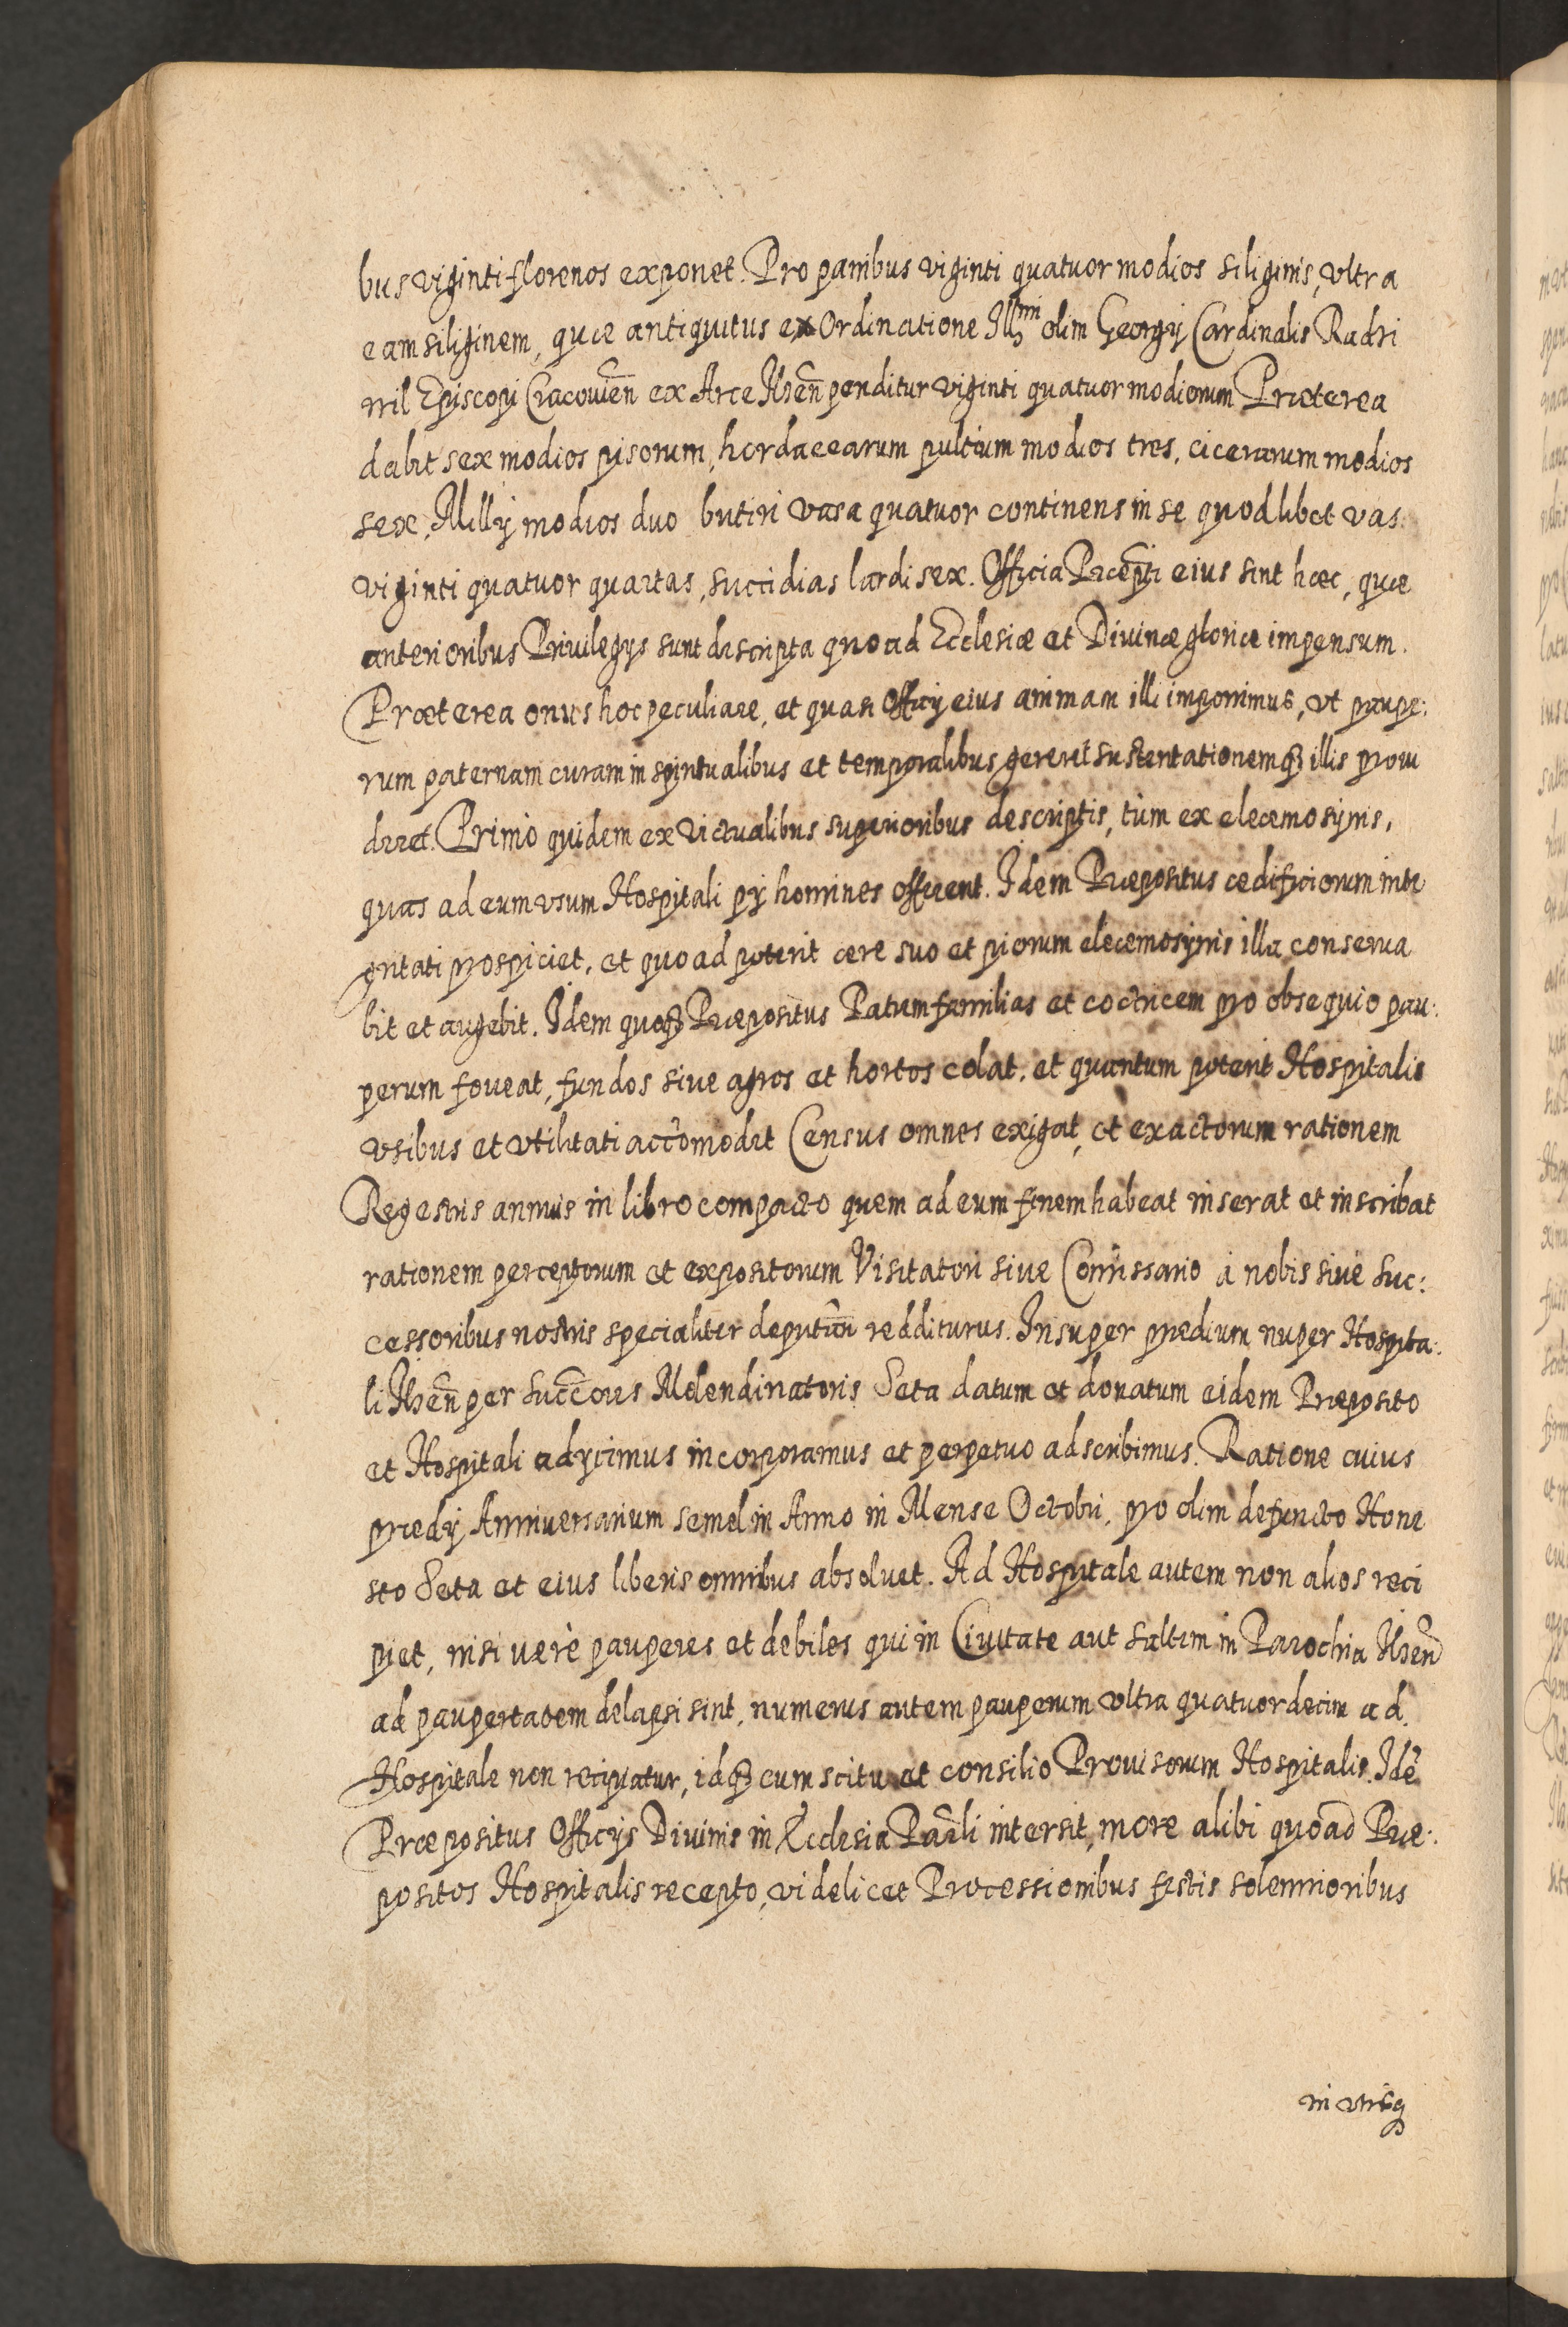 bus viginti florenos exponet. Pro panibus viginti quatuor modios siliginis, vltra
eam siliginem, quæ antiquitus ex Ordinatione Illmi olim Georgij Cardinalis Radzi
wil Episcopi Cracouien ex Arce Ilzen penditur viginti quatuor modiorum Præterea
dabit sex modios pisorum, hordacearum pultium modios tres, cicerarum modios
sex, Millij modios duo butiri vasa quatuor continens in se quodlibet vas
viginti quatuor quartas, succidias lardi sex. Officia Præpti eius sint hæc, quæ
anterioribus Privilegijs sunt descripta quoad Ecclesiæ et Divinæ gloriæ impensum.
Præterea onus hoc peculiare, et quasi Officij eius animam illi imponimus, vt paupe:
rum paternam curam in spiritualibus et temporalibus gereret sustentationemq illis proui
deret. Primò quidem ex victualibus superioribus descriptis, tùm ex eleemosynis,
quas ad eum vsum Hospitali pij homines offerent. Idem Præpositus ædificiorum inte
gritati prospiciet, et quoad poterit ære suo et piorum eleemosynis illa conserua
bit et augebit. Idem quoq Præpositus Patremfamilias et coctricem pro obsequio pau:
perum foveat, fundos sive agros et hortos colat, et quantum poterit Hospitalis
vsibus et vtilitati accomodet Census omnes exigat, et exactorum rationem
Regestris annuis in libro compacto quem ad eum finem habeat inserat et inscribat
rationem perceptorum et expositorum Visitatori sive Comissario à nobis sive suc:
cessoribus nostris specialiter deputan redditurus. Insuper prædium nuper Hospita:
li Ilzen per succores Molendinatoris Seta datum et donatum eidem Præposito
et Hospitali adycimus incorporamus et perpetuo adscribimus. Ratione cuius
prædij Anniversarium semel in Anno in Mense Octobri, pro olim defuncto Hone
sto Seta et eius liberis omnibus absoluet. Ad Hospitale autem non alios reci
piet, nisi verè pauperes et debiles qui in Ciuitate aut saltem in Parochia Ilzen
ad paupertatem delapsi sint, numerus autem pauperum vltra quatuordecim ad
Hospitale non recipiatur, idq cum scitu et consilio Prouisorum Hospitalis. Idẽ
Præpositus Officijs Divinis in Ecclesia Parli intersit, more alibi quoad Præ:
positos Hospitalis recepto, videlicet Processionibus festis solemnioribus
in vtrisq